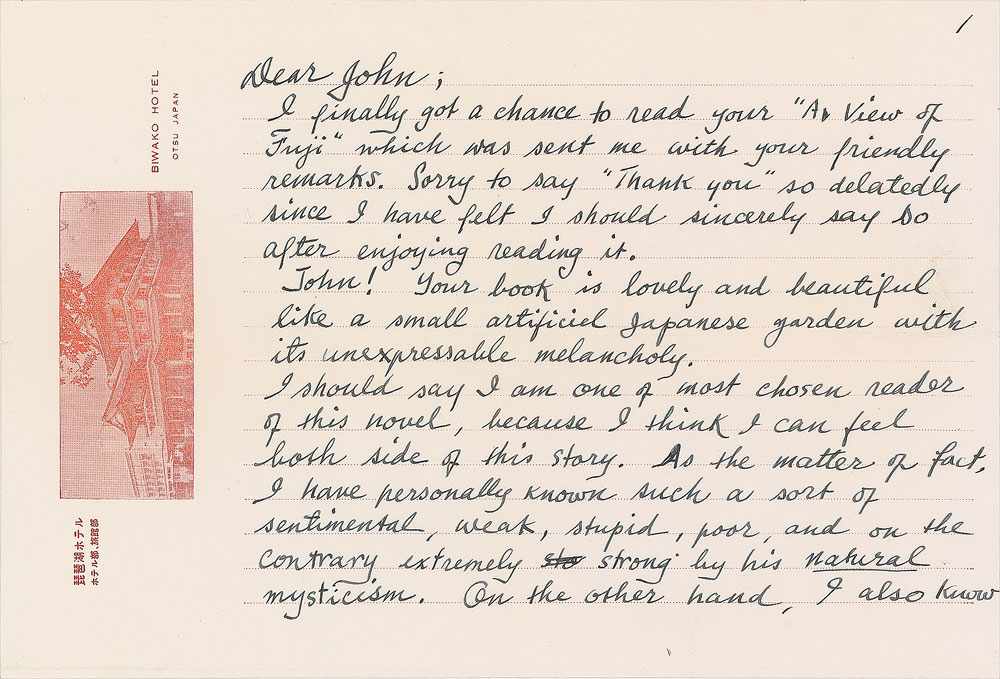 1
BIWAKO HOTEL
OTSU JAPAN
琵琶湖ホテル
ホテル部．旅館部
Dear John;
I finally got a chance to read your "A View of
Fuji" which was sent me with your friendly
remarks. Sorry to say "Thank you" so delatedly
since I have felt I should sincerely say so
after enjoying reading it.
John! Your book is lovely and beautiful
like a small artificiel Japanese garden with
its unexpressable melancholy.
I should say I am one of most chosen reader
of this novel, because I think I can feel
both side of this story. As the matter of fact,
I have personally known such a sort of
sentimental, weak, stupid, poor, and on the
contrary extremely sto strong by his natural
mysticism. On the other hand, I also know